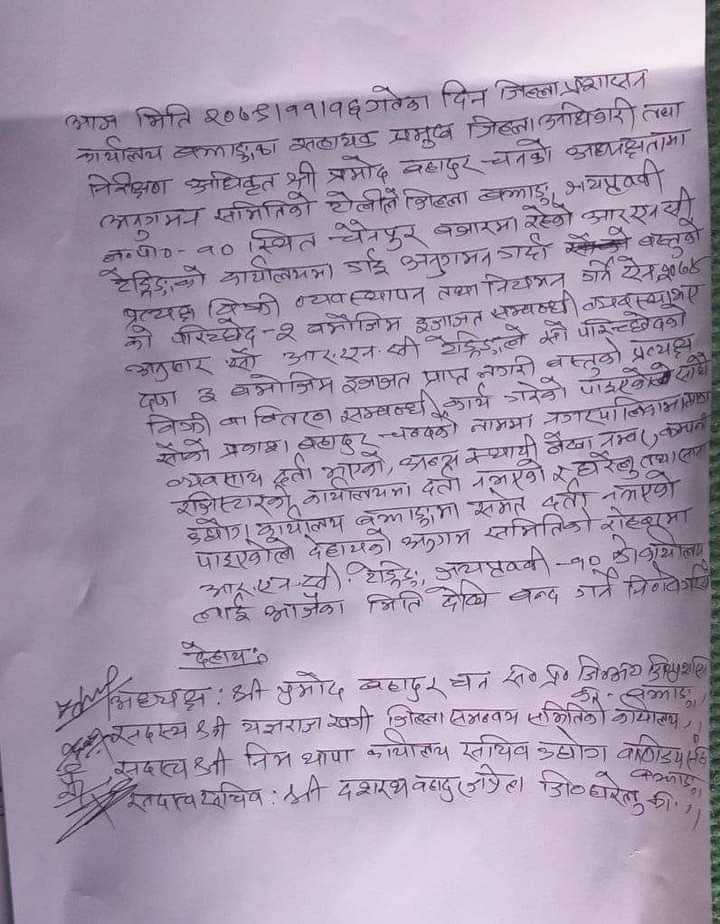 आज मिति २०७९।११।१६ गतेका दिन जिल्ला प्रशासन
कार्यालय बझाङका सहायक प्रमुख जिल्ला अधिकारी तथा
निरीक्षण अधिकृत श्री प्रमोद बहादुर चन्दको अध्यक्षतामा
अनुगमन समितिको टोलीले जिल्ला बझाङ, जयपृथ्वी
न.पा०-१० स्थित चैनपुर बजारमा रहेको आर एन सी
ट्रेडिङको कार्यालयमा गई अनुगमन गर्दा वस्तुको
प्रत्यक्ष बिक्री व्यवस्थापन तथा नियमन गर्ने ऐन, २०७४
को परिच्छेद-२ बमोजिम इजाजत सम्बन्धी व्यवस्था भए
अनुसार सो आर.एन.सी ट्रेडिङले सो परिच्छेदको
दफा ३ बमोजिम इजाजत प्राप्त नगरी वस्तुको प्रत्यक्ष
बिक्री वा वितरण सम्बन्धी कार्य गरेको पाइएको साथै
प्रकाश बहादुर चन्दको नाममा नगरपालिकामा
व्यवसाय दर्ता भएको, अन्य स्थायी लेखा नम्बर, कम्पनी
रजिस्टारको कार्यालयमा दर्ता नभएको र घरेलु तथा साना
उद्योग कार्यालय बझाङमा समेत दर्ता नभएको
पाइएकोले देहायको अनुगमन समितिको रोहबरमा
आर.एन.सी. ट्रेडिङ, जयपृथ्वी-१० को कार्यालय
लाई आजैका मिति देखि बन्द गर्ने निर्णय गरियो
देहाय:
अध्यक्ष : श्री प्रमोद बहादुर चन्द स० प्र० जि०अ०
सदस्य श्री यज्ञराज खत्री जिल्ला समन्वय समितिको कार्यालय,
सदस्य श्री थापा कार्यालय सचिव उद्योग बाणिज्य संघ बझाङ
सदस्य सचिव : श्री दशरथ बहादुर घरेलु